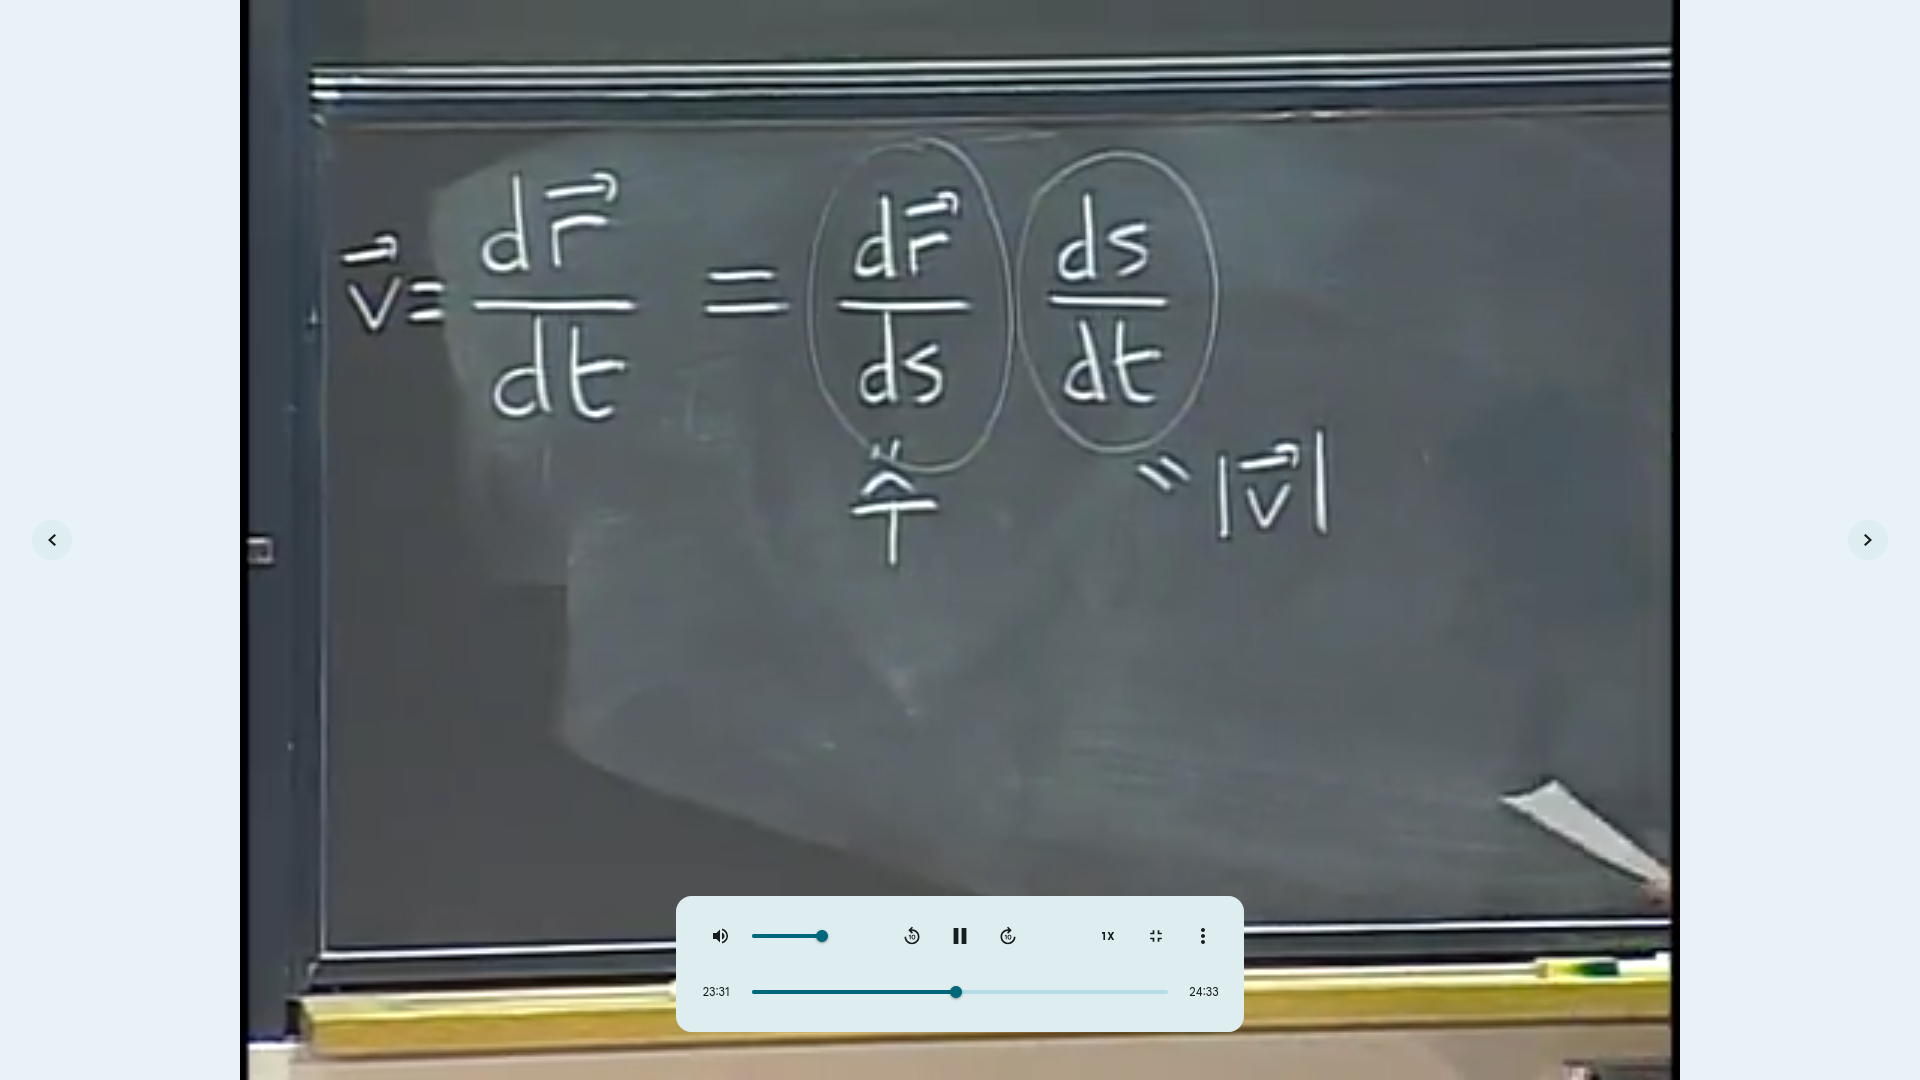 v⃗ = dr⃗/dt = dr⃗/ds ds/dt
" T̂ = |v⃗|
10 10 1X
23:31 24:33